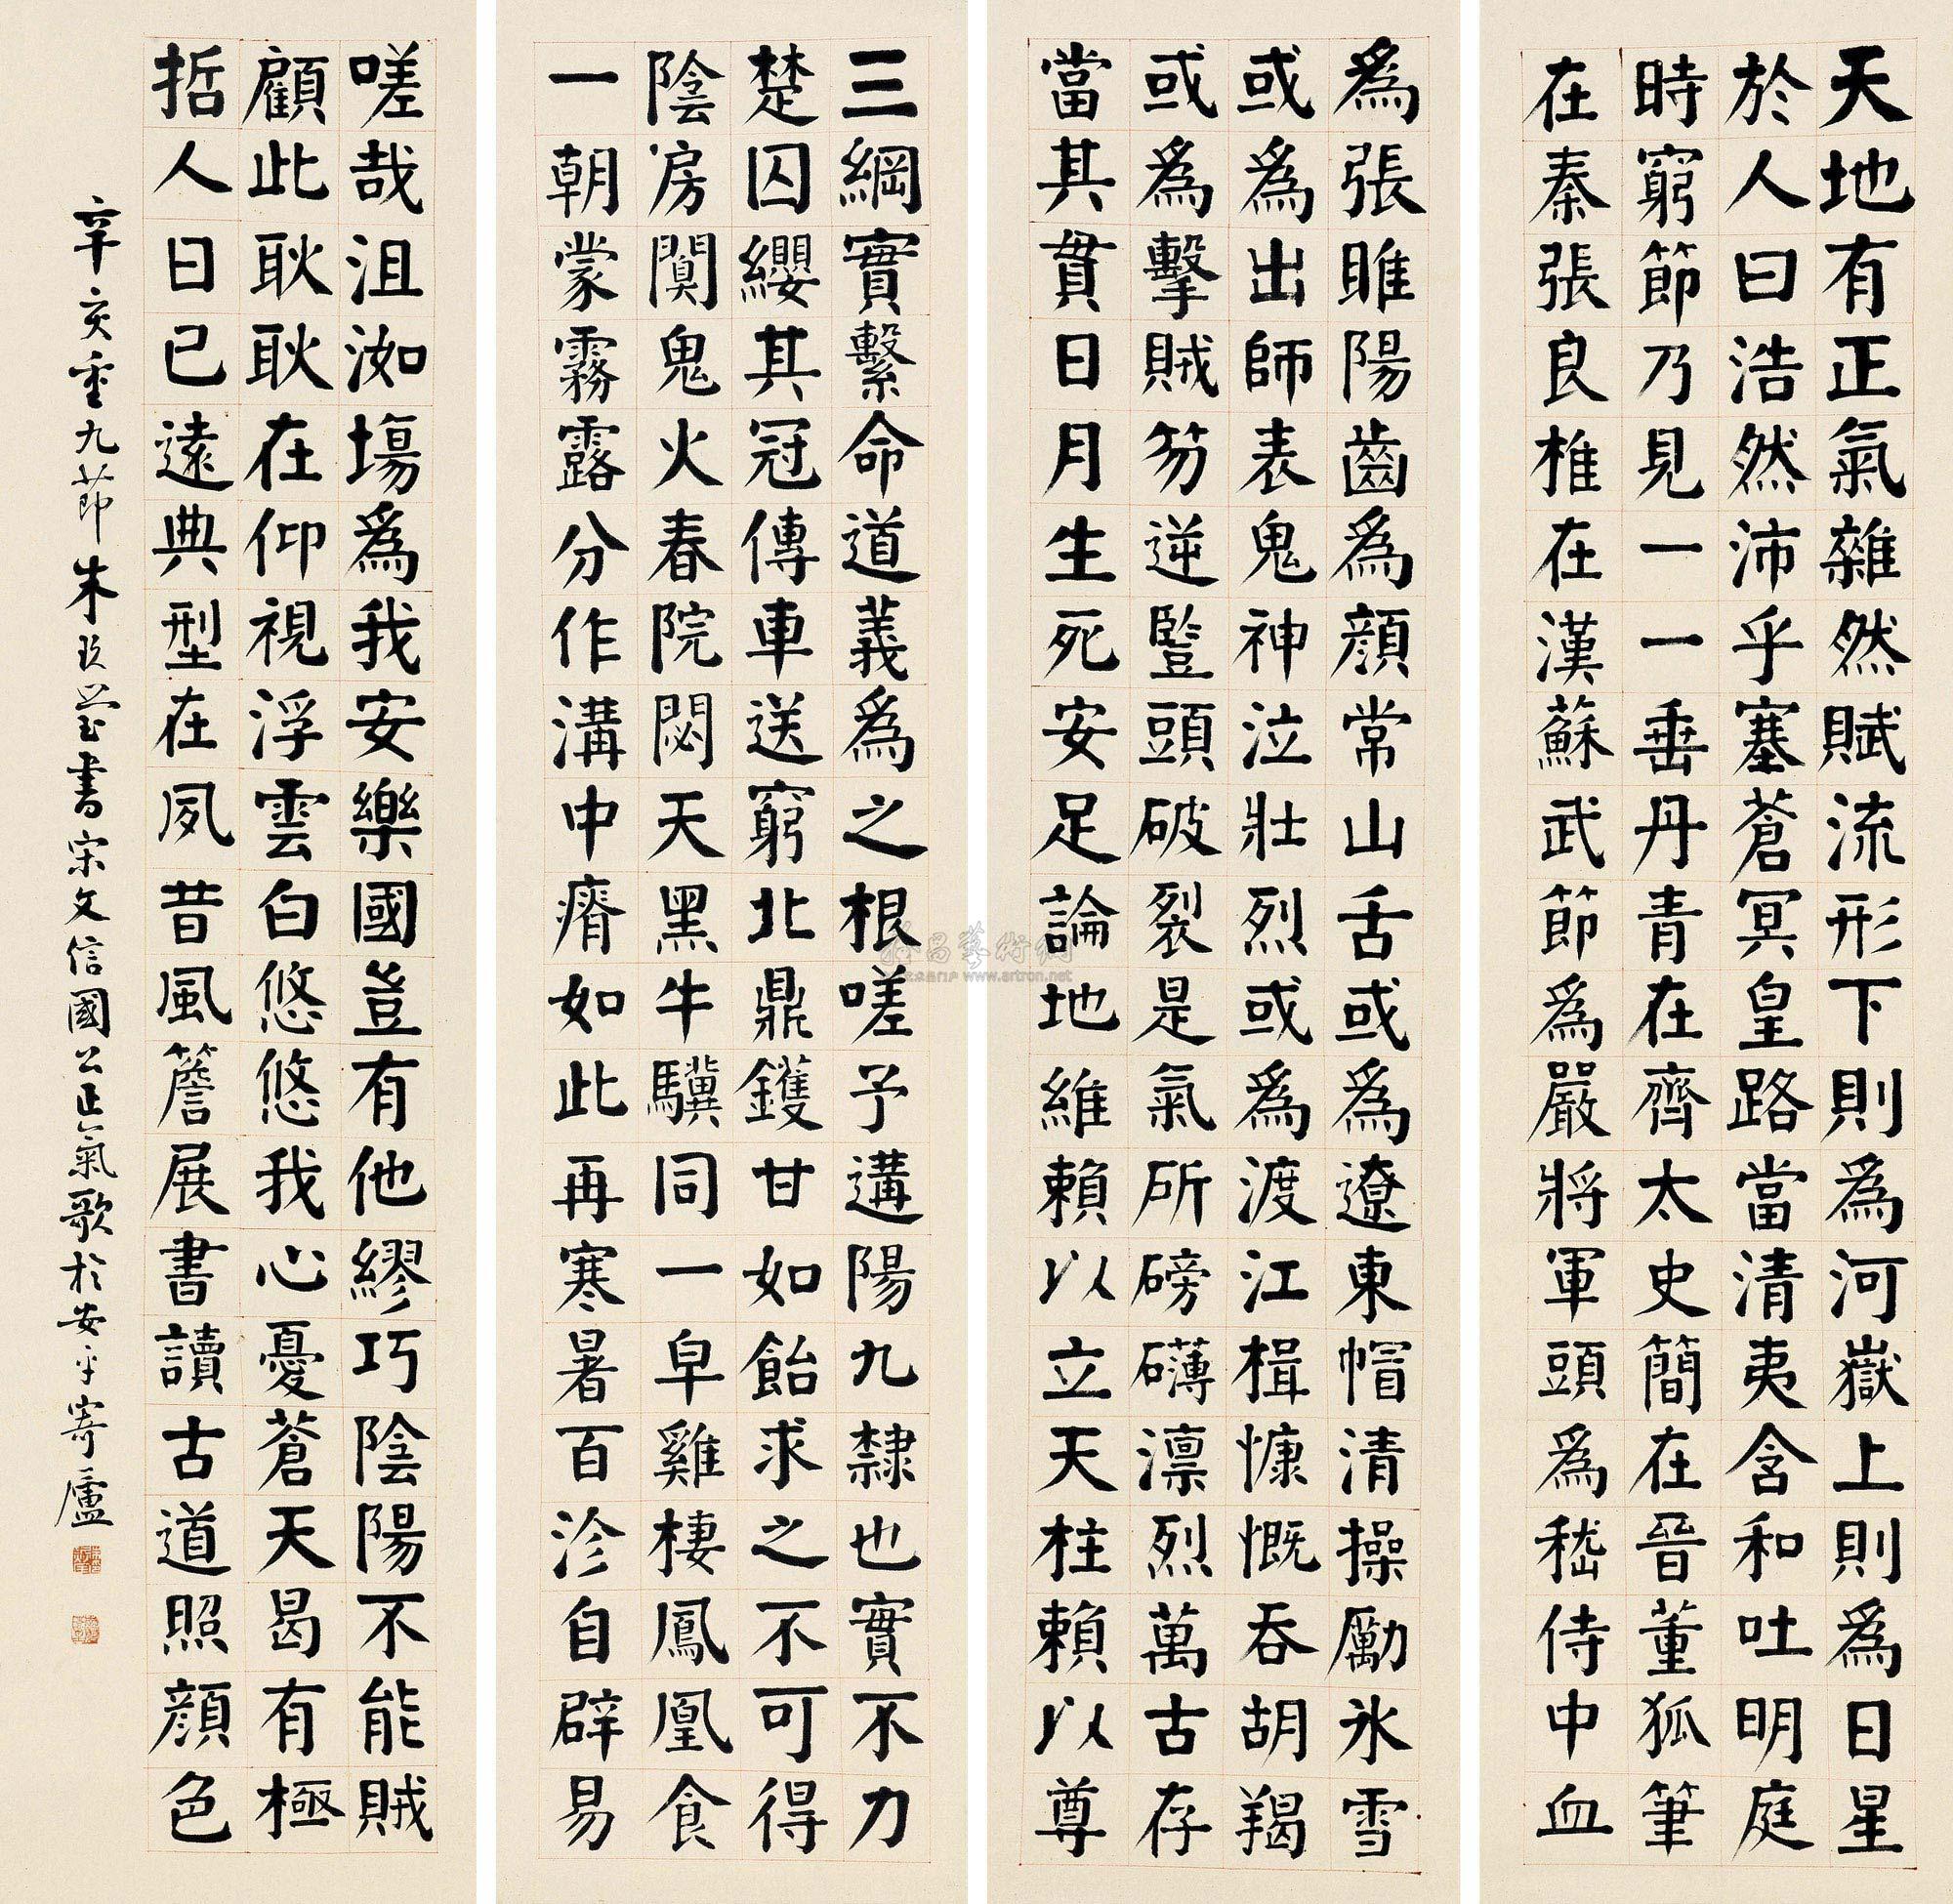 天地有正氣雜然賦流形下則爲河嶽上則爲日星
於人曰浩然沛乎塞蒼冥皇路當清夷含和吐明庭
時窮節乃見一一垂丹青在齊太史簡在晉董狐筆
在秦張良椎在漢蘇武節爲嚴將軍頭爲嵇侍中血
爲張睢陽齒爲顏常山舌或爲遼東帽清操勵氷雪
或爲出師表鬼神泣壯烈或爲渡江楫慷慨吞胡羯
或爲擊賊笏逆豎頭破裂是氣所磅礴凛烈萬古存
當其貫日月生死安足論地維賴以立天柱賴以尊
三綱實繫命道義爲之根嗟予遘陽九隸也實不力
楚囚纓其冠傳車送窮北鼎鑊甘如飴求之不可得
陰房闃鬼火春院閟天黑牛驥同一皁雞棲鳳凰食
一朝蒙霧露分作溝中瘠如此再寒暑百沴自辟易
嗟哉沮洳場爲我安樂國豈有他繆巧陰陽不能賊
顧此耿耿在仰視浮雲白悠悠我心憂蒼天曷有極
哲人日已遠典型在夙昔風簷展書讀古道照顏色
辛亥重九節朱玖瑩書宋文信國公正氣歌於安平寄廬
雅昌藝術網
www.artron.net